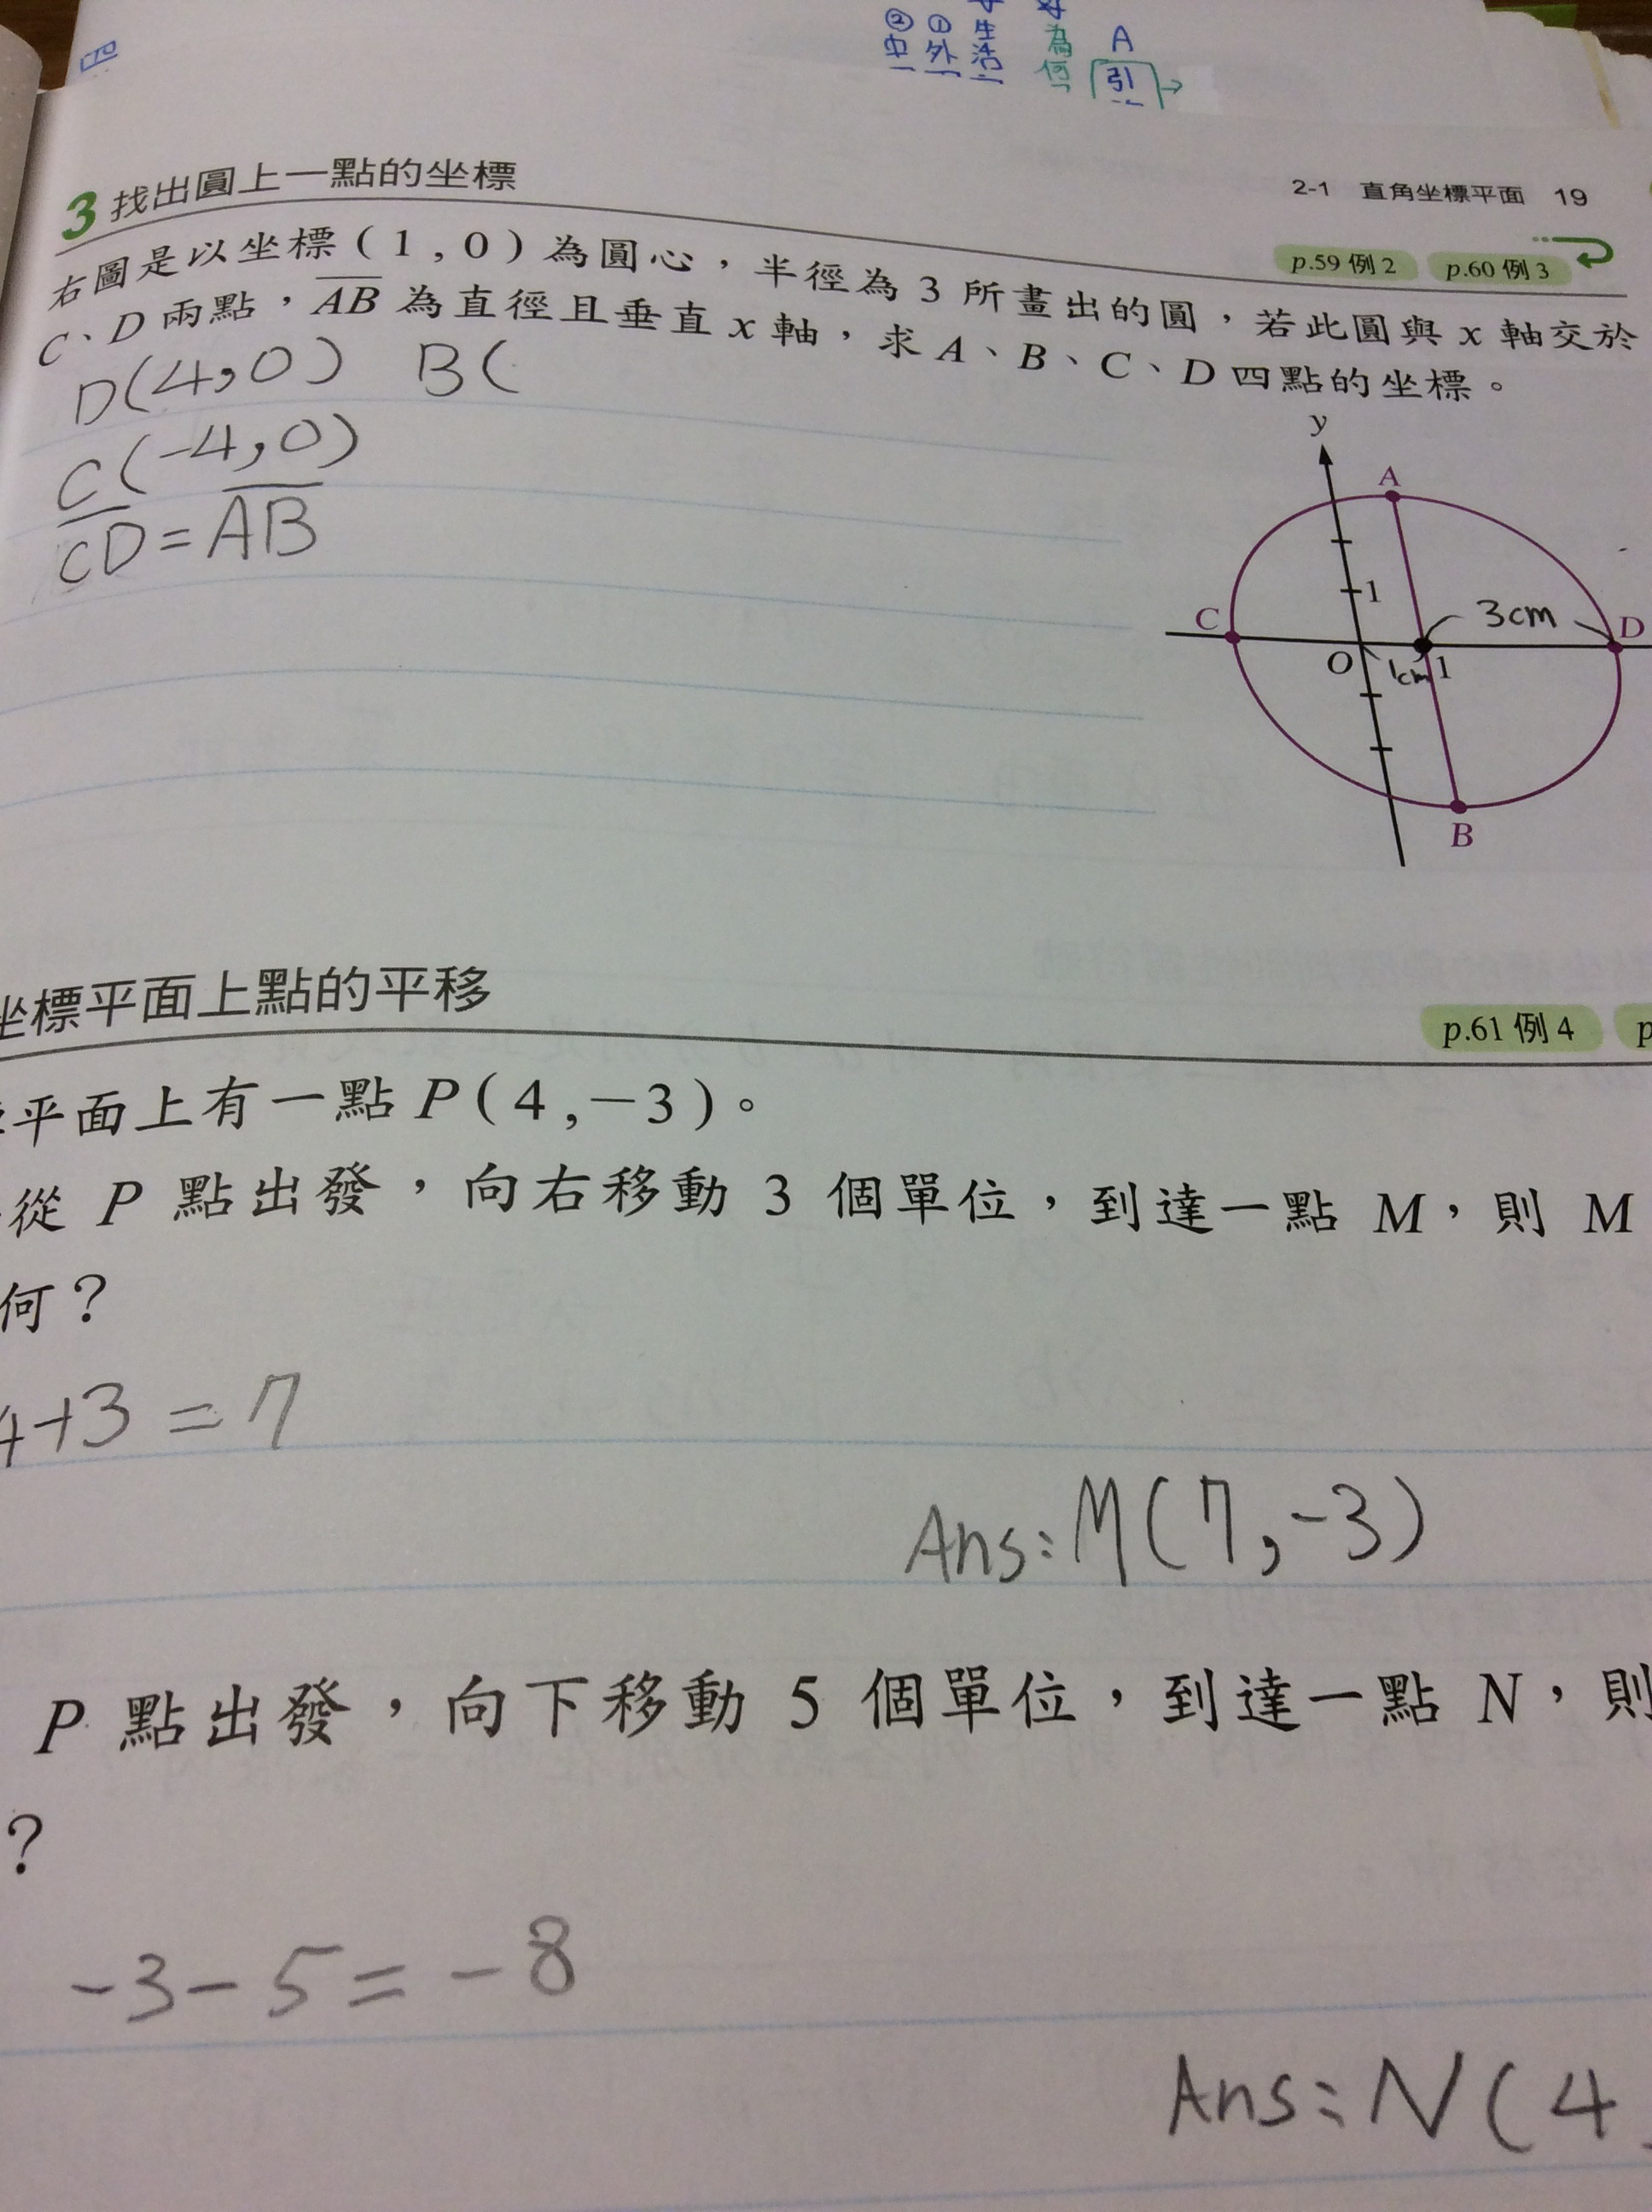 A
生活
為何
引
①外
②中
3 找出圓上一點的坐標
2-1 直角坐標平面 19
p.59 例 2 p.60 例 3
右圖是以坐標(1,0)為圓心，半徑為 3 所畫出的圓，若此圓與 x 軸交於
C、D 兩點，AB 為直徑且垂直 x 軸，求 A、B、C、D 四點的坐標。
D(4,0) B(
C(-4,0)
CD=AB
y
A
1
C
3cm
D
O
1cm
1
B
坐標平面上點的平移
p.61 例 4 p
平面上有一點 P(4,-3)。
從 P 點出發，向右移動 3 個單位，到達一點 M，則 M
何？
4+3=7
Ans:M(7,-3)
P 點出發，向下移動 5 個單位，到達一點 N，則
？
-3-5=-8
Ans:N(4